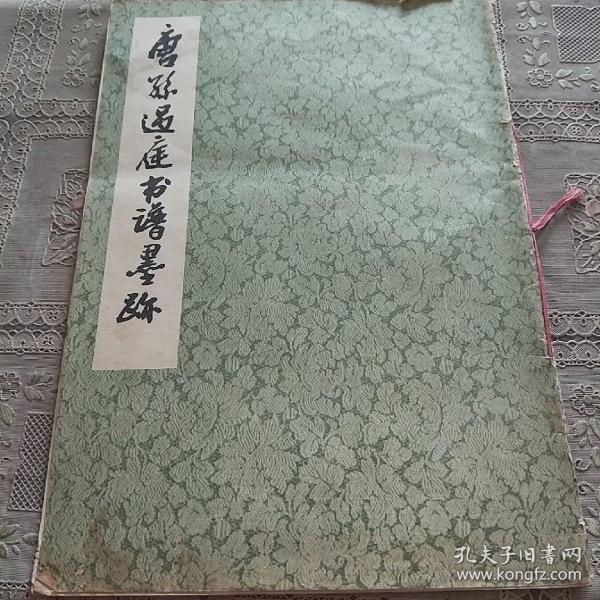 唐孙过庭书谱墨跡
孔夫子旧書网
www.kongfz.com